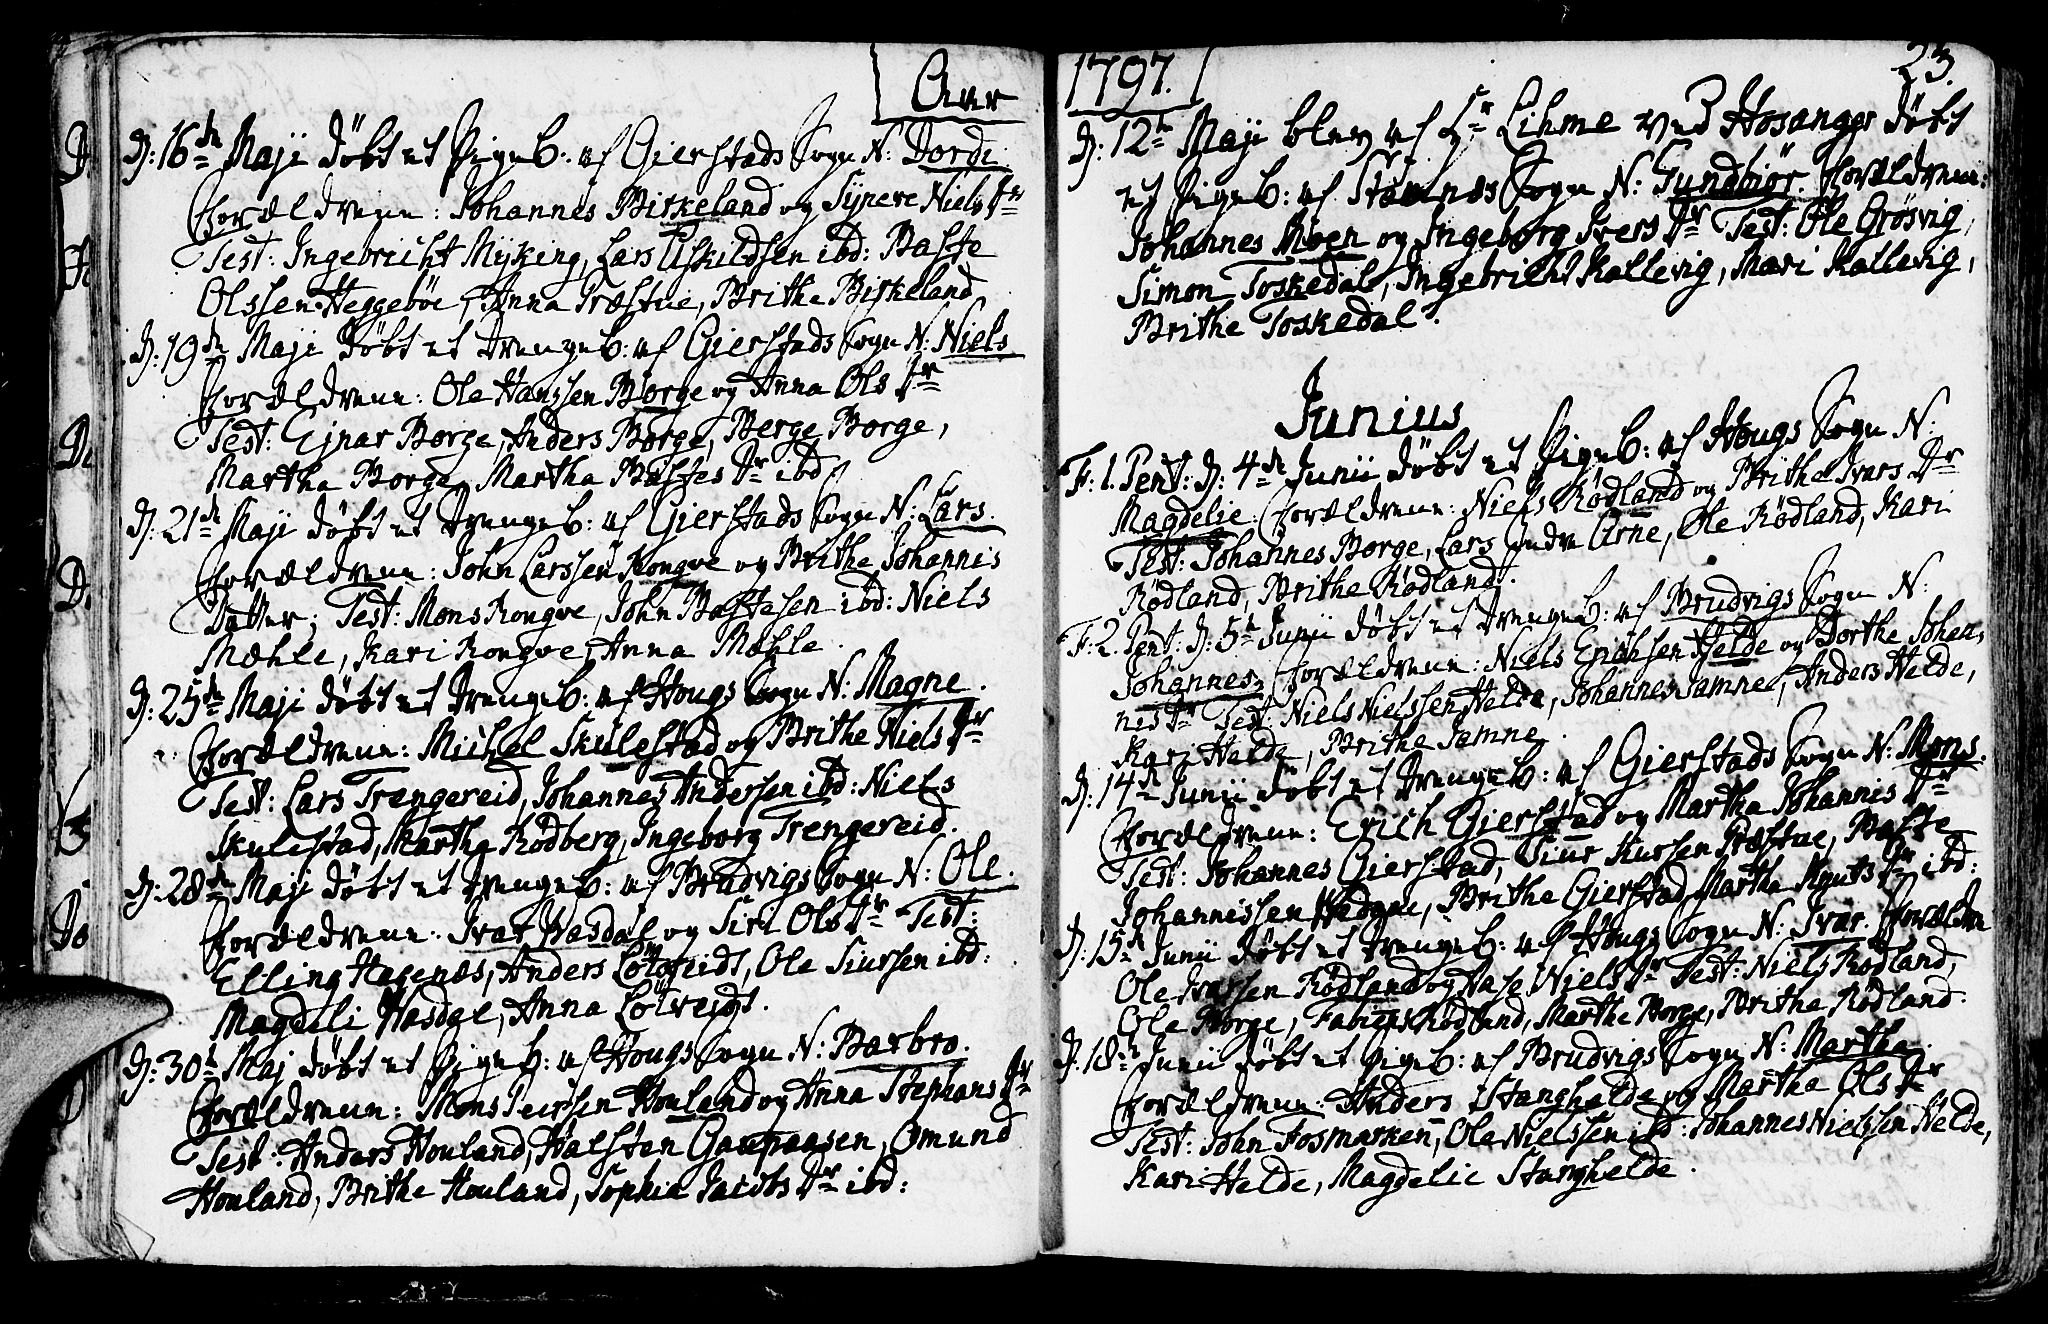 Aar
D: 16de Maji døbt et Pigeb: af Gierstads Sogn N: Dordi.
Forældrene: Johannes Birkeland og Synneve Niels Dr
Test: Ingebricht Myking, Lars Eskildsen ibd: Baste
Olssen Heggebøe, Anna Præstue, Brithe Birkeland
D: 19de Maji døbt et Drengeb: af Gierstads Sogn N: Niels
Forældrene: Ole Hanssen Borge og Anna Ols Dr
Test: Ejnar Borge, Anders Borge, Berge Borge,
Martha Borge, Martha Bastes Dr ibd
D: 21de Maji døbt et Drengeb: af Gierstads Sogn N: Lars.
Forældrene: John Larssen Rongve og Brithe Johannis
Datter; Test: Mons Rongve, John Bastesen ibd: Niels
Mæhle, Kari Rongve, Anna Mæhle.
D: 25de Maji døbt et Drengeb: af Hougs Sogn N: Magne.
Forældrene: Michel Skulestad og Brithe Niels Dr
Test: Lars Trengereid, Johannes Andersen ibd: Niels
Skulestad, Martha Rødberg, Ingeborg Trengereid.
D: 28de Maji døbt et Drengeb: af Brudvigs Sogn N: Ole.
Forældrene: Ivar Hasdal og Siri Ols Dr Test:
Elling Hagenæs, Anders Lotveidt, Ole Siursen ibd:
Magdeli Hasdal, Anna Lotveidt.
D: 30te Maj døbt et Pigeb: af Hougs Sogn N: Barbro.
Forældrene: Mons Peirsen Houland og Anna Stephans Dr
Test: Anders Houland, Halsten Omund
Houland, Brithe Houland, Sophia Jacobs Dr ibd:
1797. 23.
D: 12te Maji blev af Hr Lihme ved Hosanger døbt
et Pigeb: af Stamnæs Sogn N: Gundbiør. Forældrene:
Johannes Moen og Ingeborg Ivers Dr Test: Ole Grøsvig,
Simon Toskedal, Ingebricht Kallevig, Mari Kallevig,
Brithe Toskedal.
Junius
F: 1. Pent: D: 4de Junii døbt et Pigeb: af Hougs Sogn N:
Magdelie. Forældrene: Niels Rødland og Brithe Ivars Dr
Test: Johannes Borge, Lars Indre Arne, Ole Rødland, Kari
Rødland, Brithe Rødland.
F: 2. Pent: D: 5te Junii døbt et Drengeb: af Brudvigs Sogn N:
Johannes, Forældrene: Niels Erichsen Helde og Dorthe Johan,
nis Dr Test: Niels Nielssen Helde, Johannes Jamne, Anders Helde,
Kari Helde, Brithe Jamne.
D: 14de Junii døbt et Drengeb: af Gierstads Sogn N: Mons.
Forældrene: Erich Gierstad og Martha Johannis Dr
Test: Johannes Gierstad, Siur Præstue, Baste
Johannissen Brithe Gierstad, Martha Knuts Dr ibd:
D: 15de Junii døbt et Drengeb: af Hougs Sogn N: Ivar. Forældre
Ole Ivarssen Rødland og Aase Niels Dr Test: Niels Rødland,
Ole Borge, Rødland, Marthe Borge, Brithe Rødland.
D: 18de Junii døbt et Pigeb: af Brudvigs Sogn N: Martha.
Forældrene: Anders Stanghelde og Martha Ols Dr
Test: John Fosmarken, Ole Nielssen ibd: Johannes Nielssen Helde,
Kari Helde, Magdelie Stanghelde.